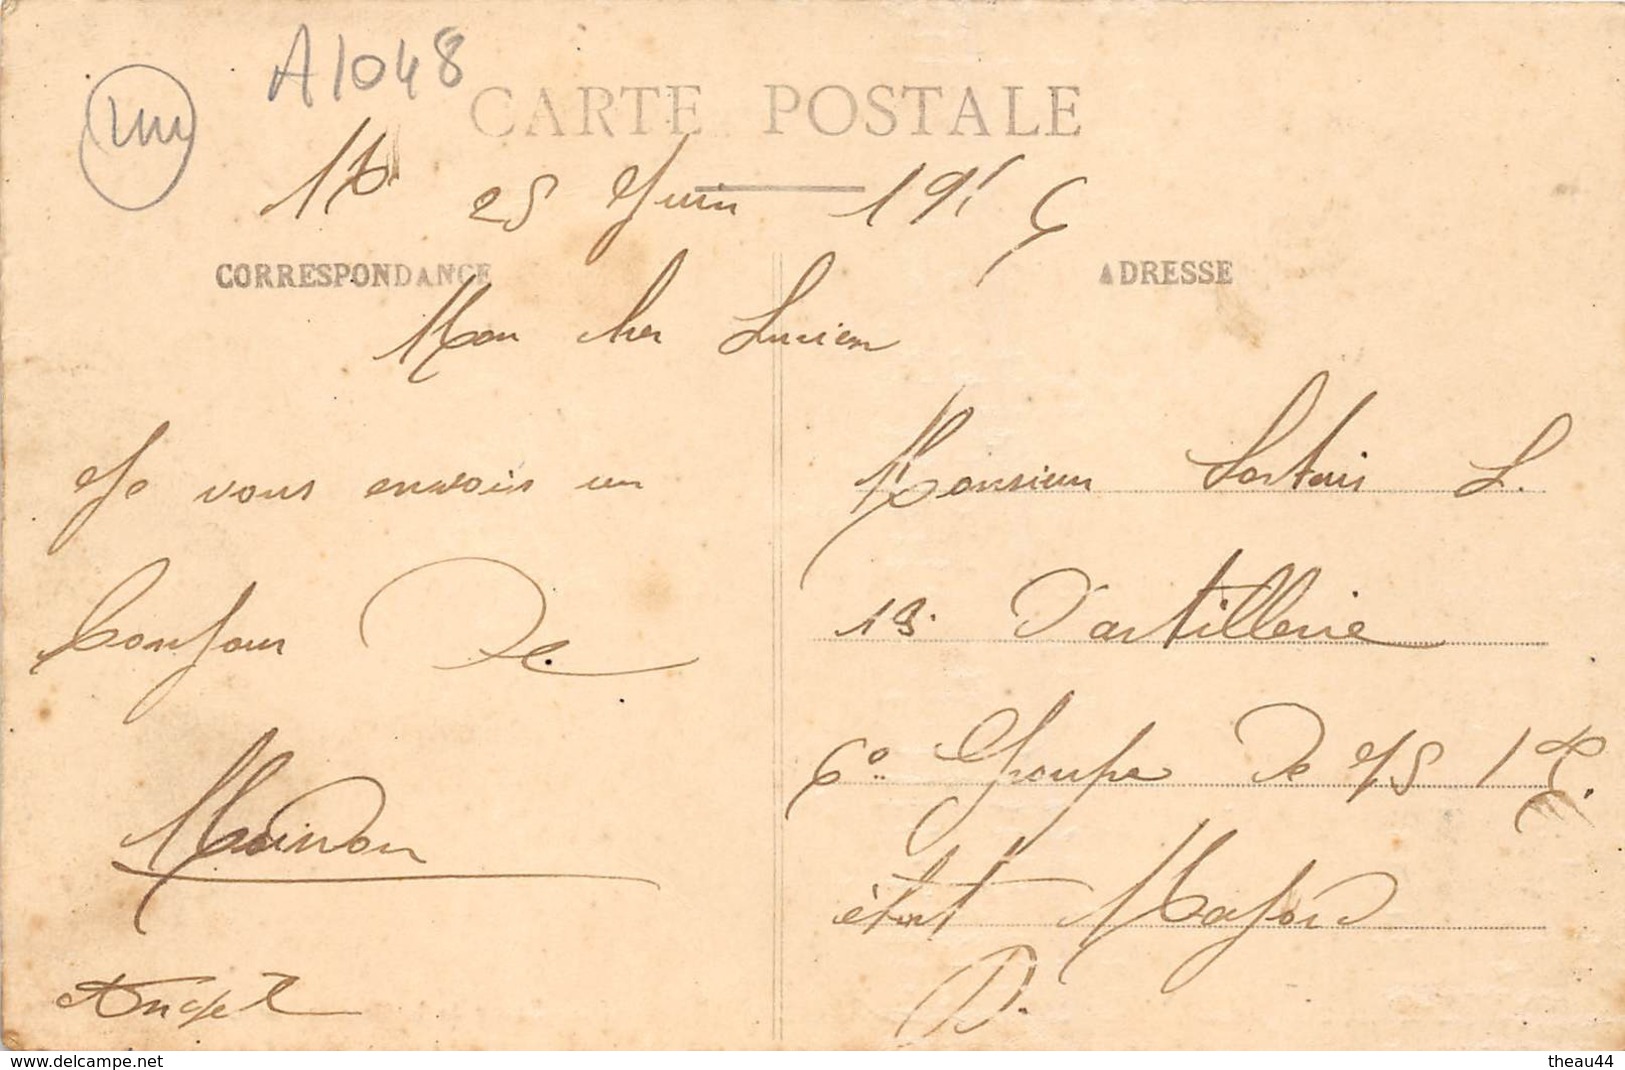 A1048
CARTE POSTALE
25 Juin 191
CORRESPONDANCE
ADRESSE
Mon cher Lucien
Je vous envois un
bonjour De
Angel
Monsieur Sortais L.
13. D'artillerie
6e Groupe De 75 1
état Major
D.
delcampe.net
theau44